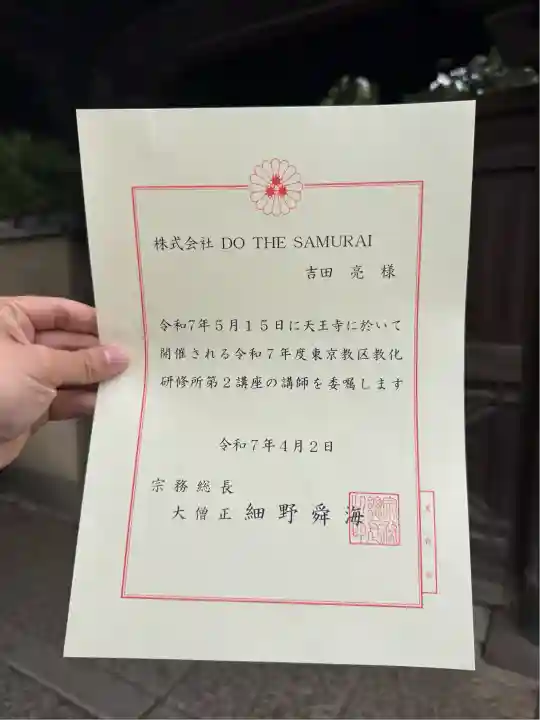 株式会社 DO THE SAMURAI
吉田 亮 様
令和7年5月15日に天王寺に於いて
開催される令和7年度東京教区教化
研修所第2講座の講師を委嘱します
令和7年4月2日
宗務総長
大僧正 細野舜海